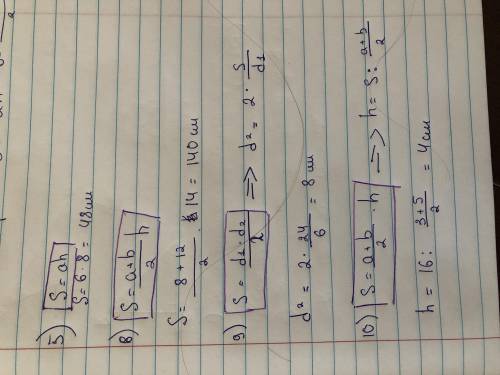 5) S = ah
S = 6 · 8 = 48 см
8) S = a+b/2 h
S = 8 + 12/2 · 14 = 140 см
9) S = d1 · d2/2 => d2 = 2 · S/d1
d2 = 2 · 24/6 = 8 см
10) S = a+b/2 · h => h = S : a+b/2
h = 16 : 3+5/2 = 4 см